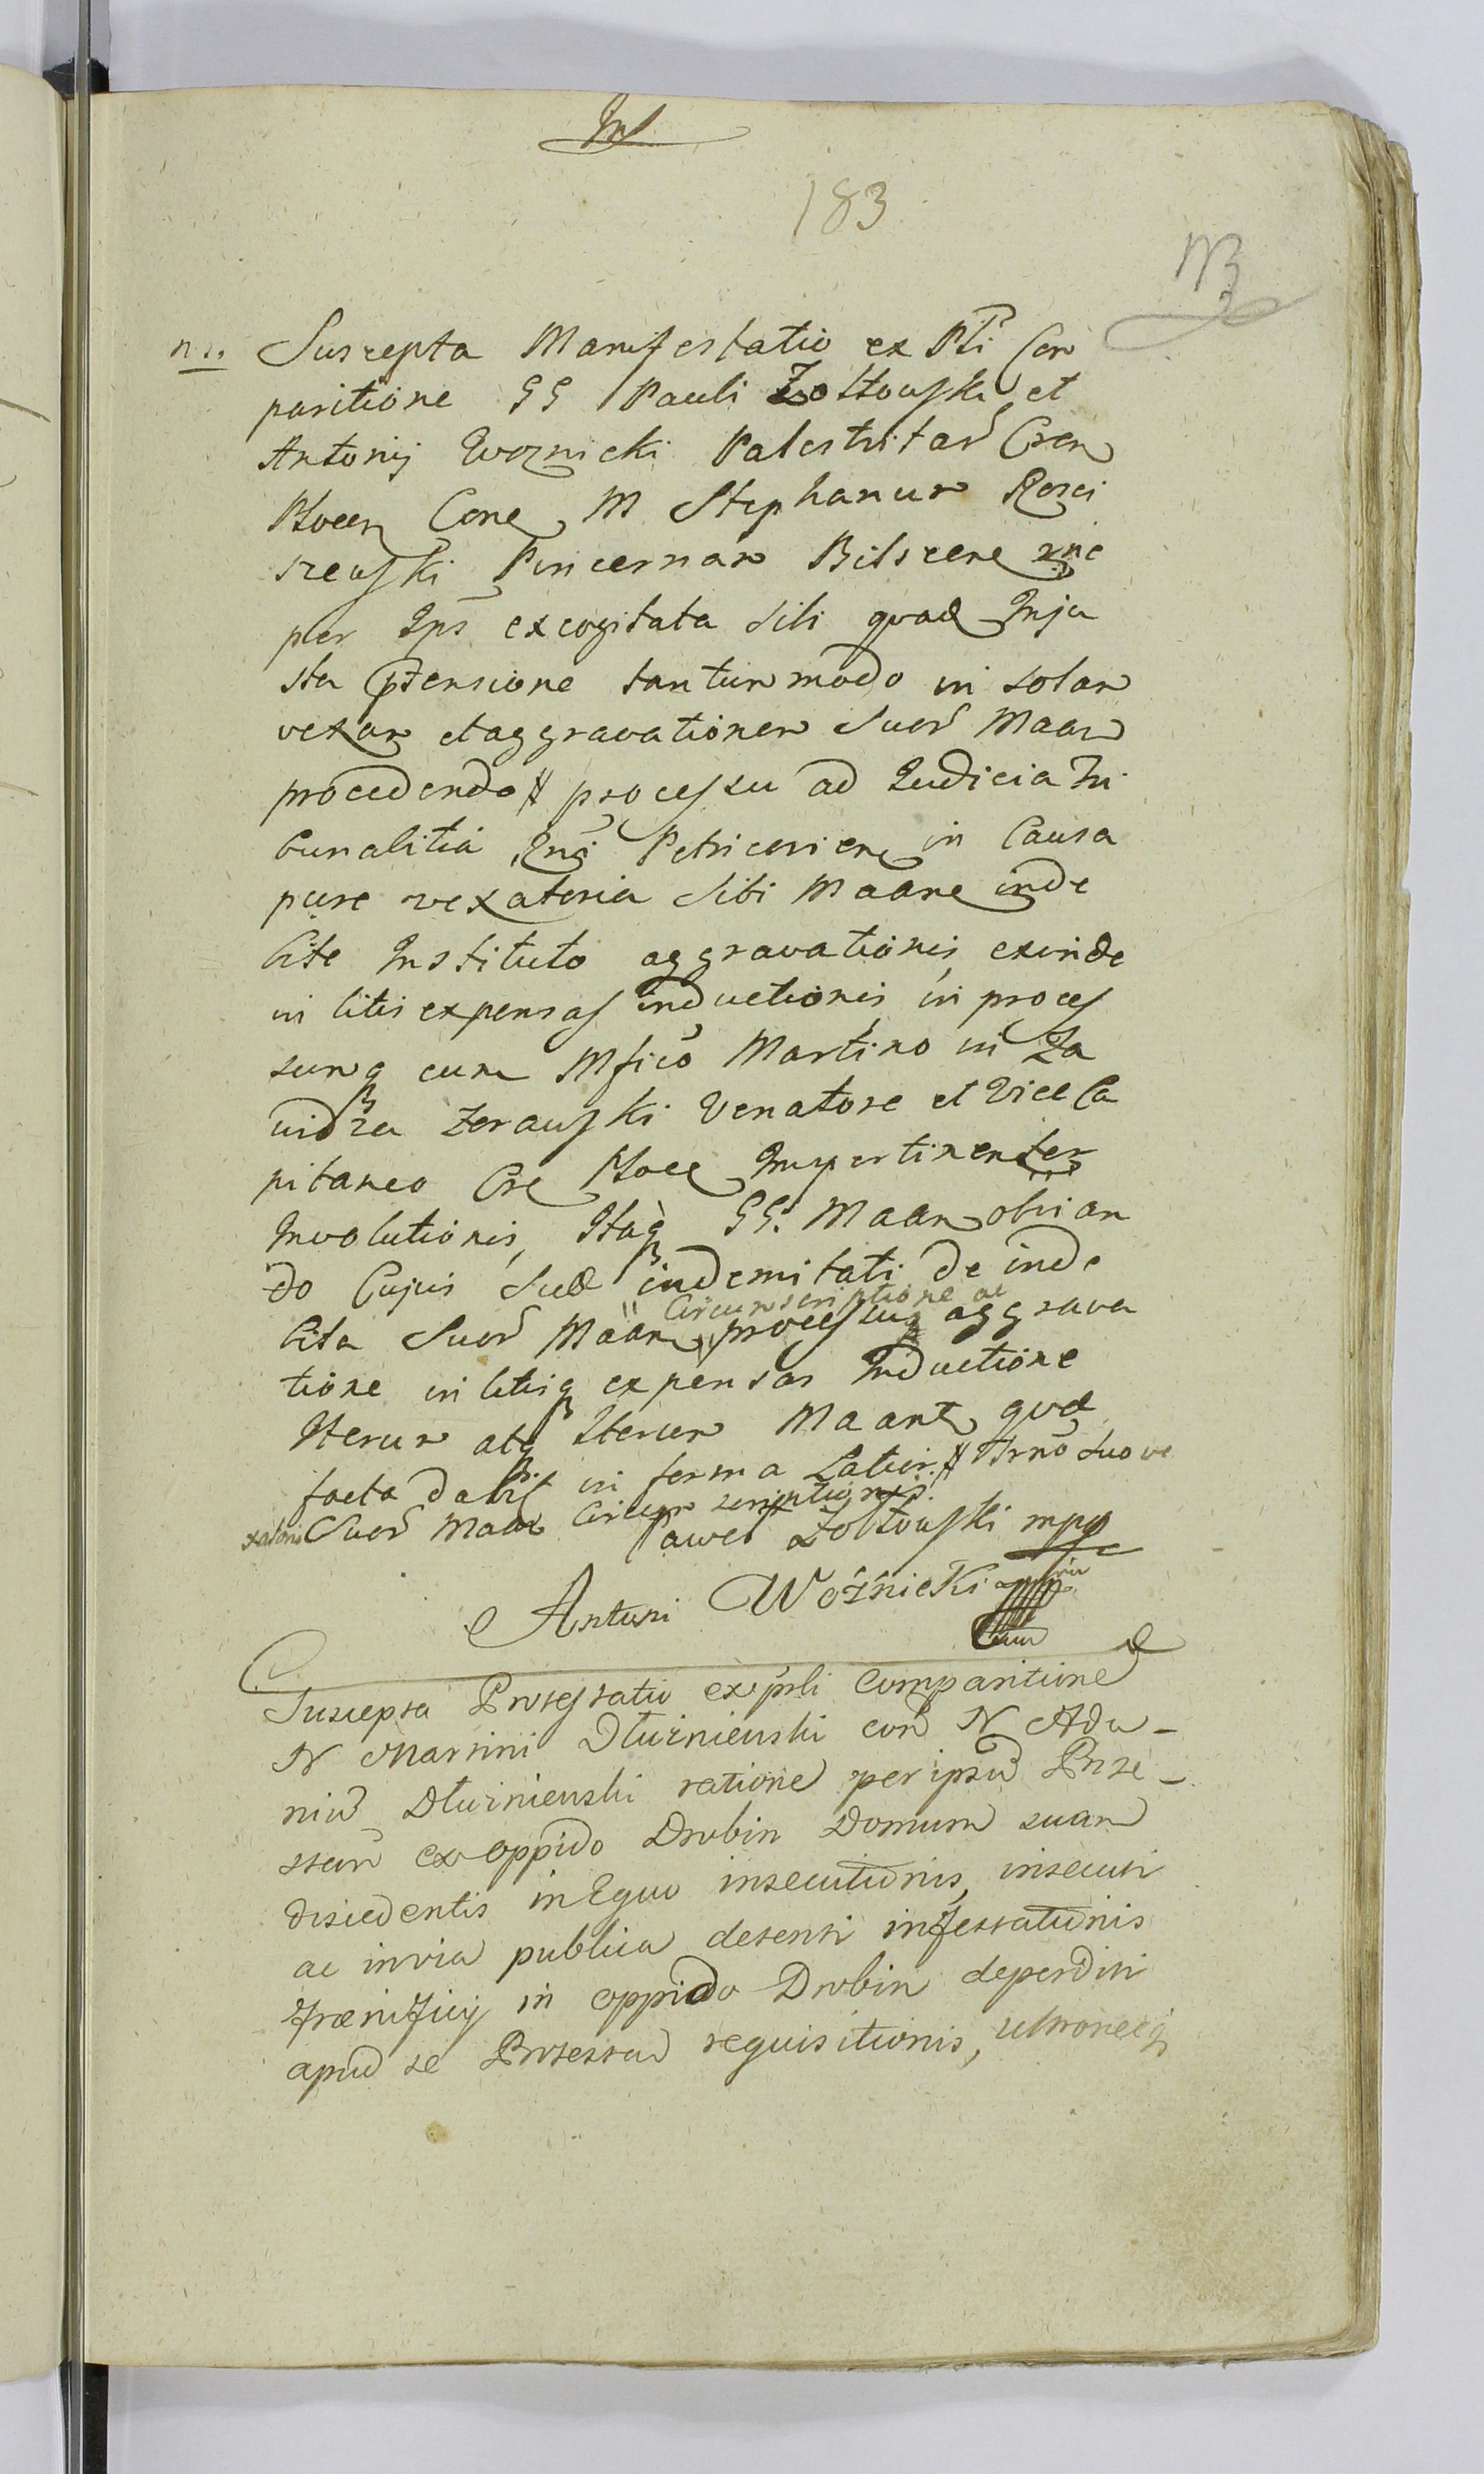 183
Suscepta Manifestatio ex Pti Com
paritione GG Pauli Zołtowski et
Antonij Woznicki Palestritar Cren
Plocen Cone M Stephanum Rosci
szewski Pincernam Bilscene rne
per Ips excogitata sibi quad Inju
sta ptensione tantummodo in solam
vexam et aggravationem Suor Maan
procedendo processu ad Judicia Tri
bunalitia Rni Petricovien in Causa
pure vexatoria sibi Maane inde
bite Instituto aggravationis, exinde
in litis expensas inductionis, in proces
sumq cum Mfico Martino in Za
widza Zerawski Venatore et Vice Ca
pitaneo Cre Ploce Impertinenter
Involutionis, Itaq GG. Maan obvian
do Cujus suæ indemnitati de inde
Circumscriptione ac
bita Suor Maan processuq aggrava
tione in litisq expensas Inductione
Iterum atq Iterum Maant, quæ
facta dabit in forma Latiori Trno suo ve
xatorio Suor Maan Circumscriptionis.
Paweł Zołtowski mpp
Antoni Woźnicki
Suscepta Protestatio ex psti Comparitione
N Martini Dłuzniewski con N Ada-
mu Dłuzniewski ratione per ipsu Prote-
stan ex oppido Drobin Domum suam
discedentis in Equo insecutionis, insecuti
ac in via publica detenti infestationis
frænificij in oppido Drobin deperditi
apud se Protestan requisitionis,